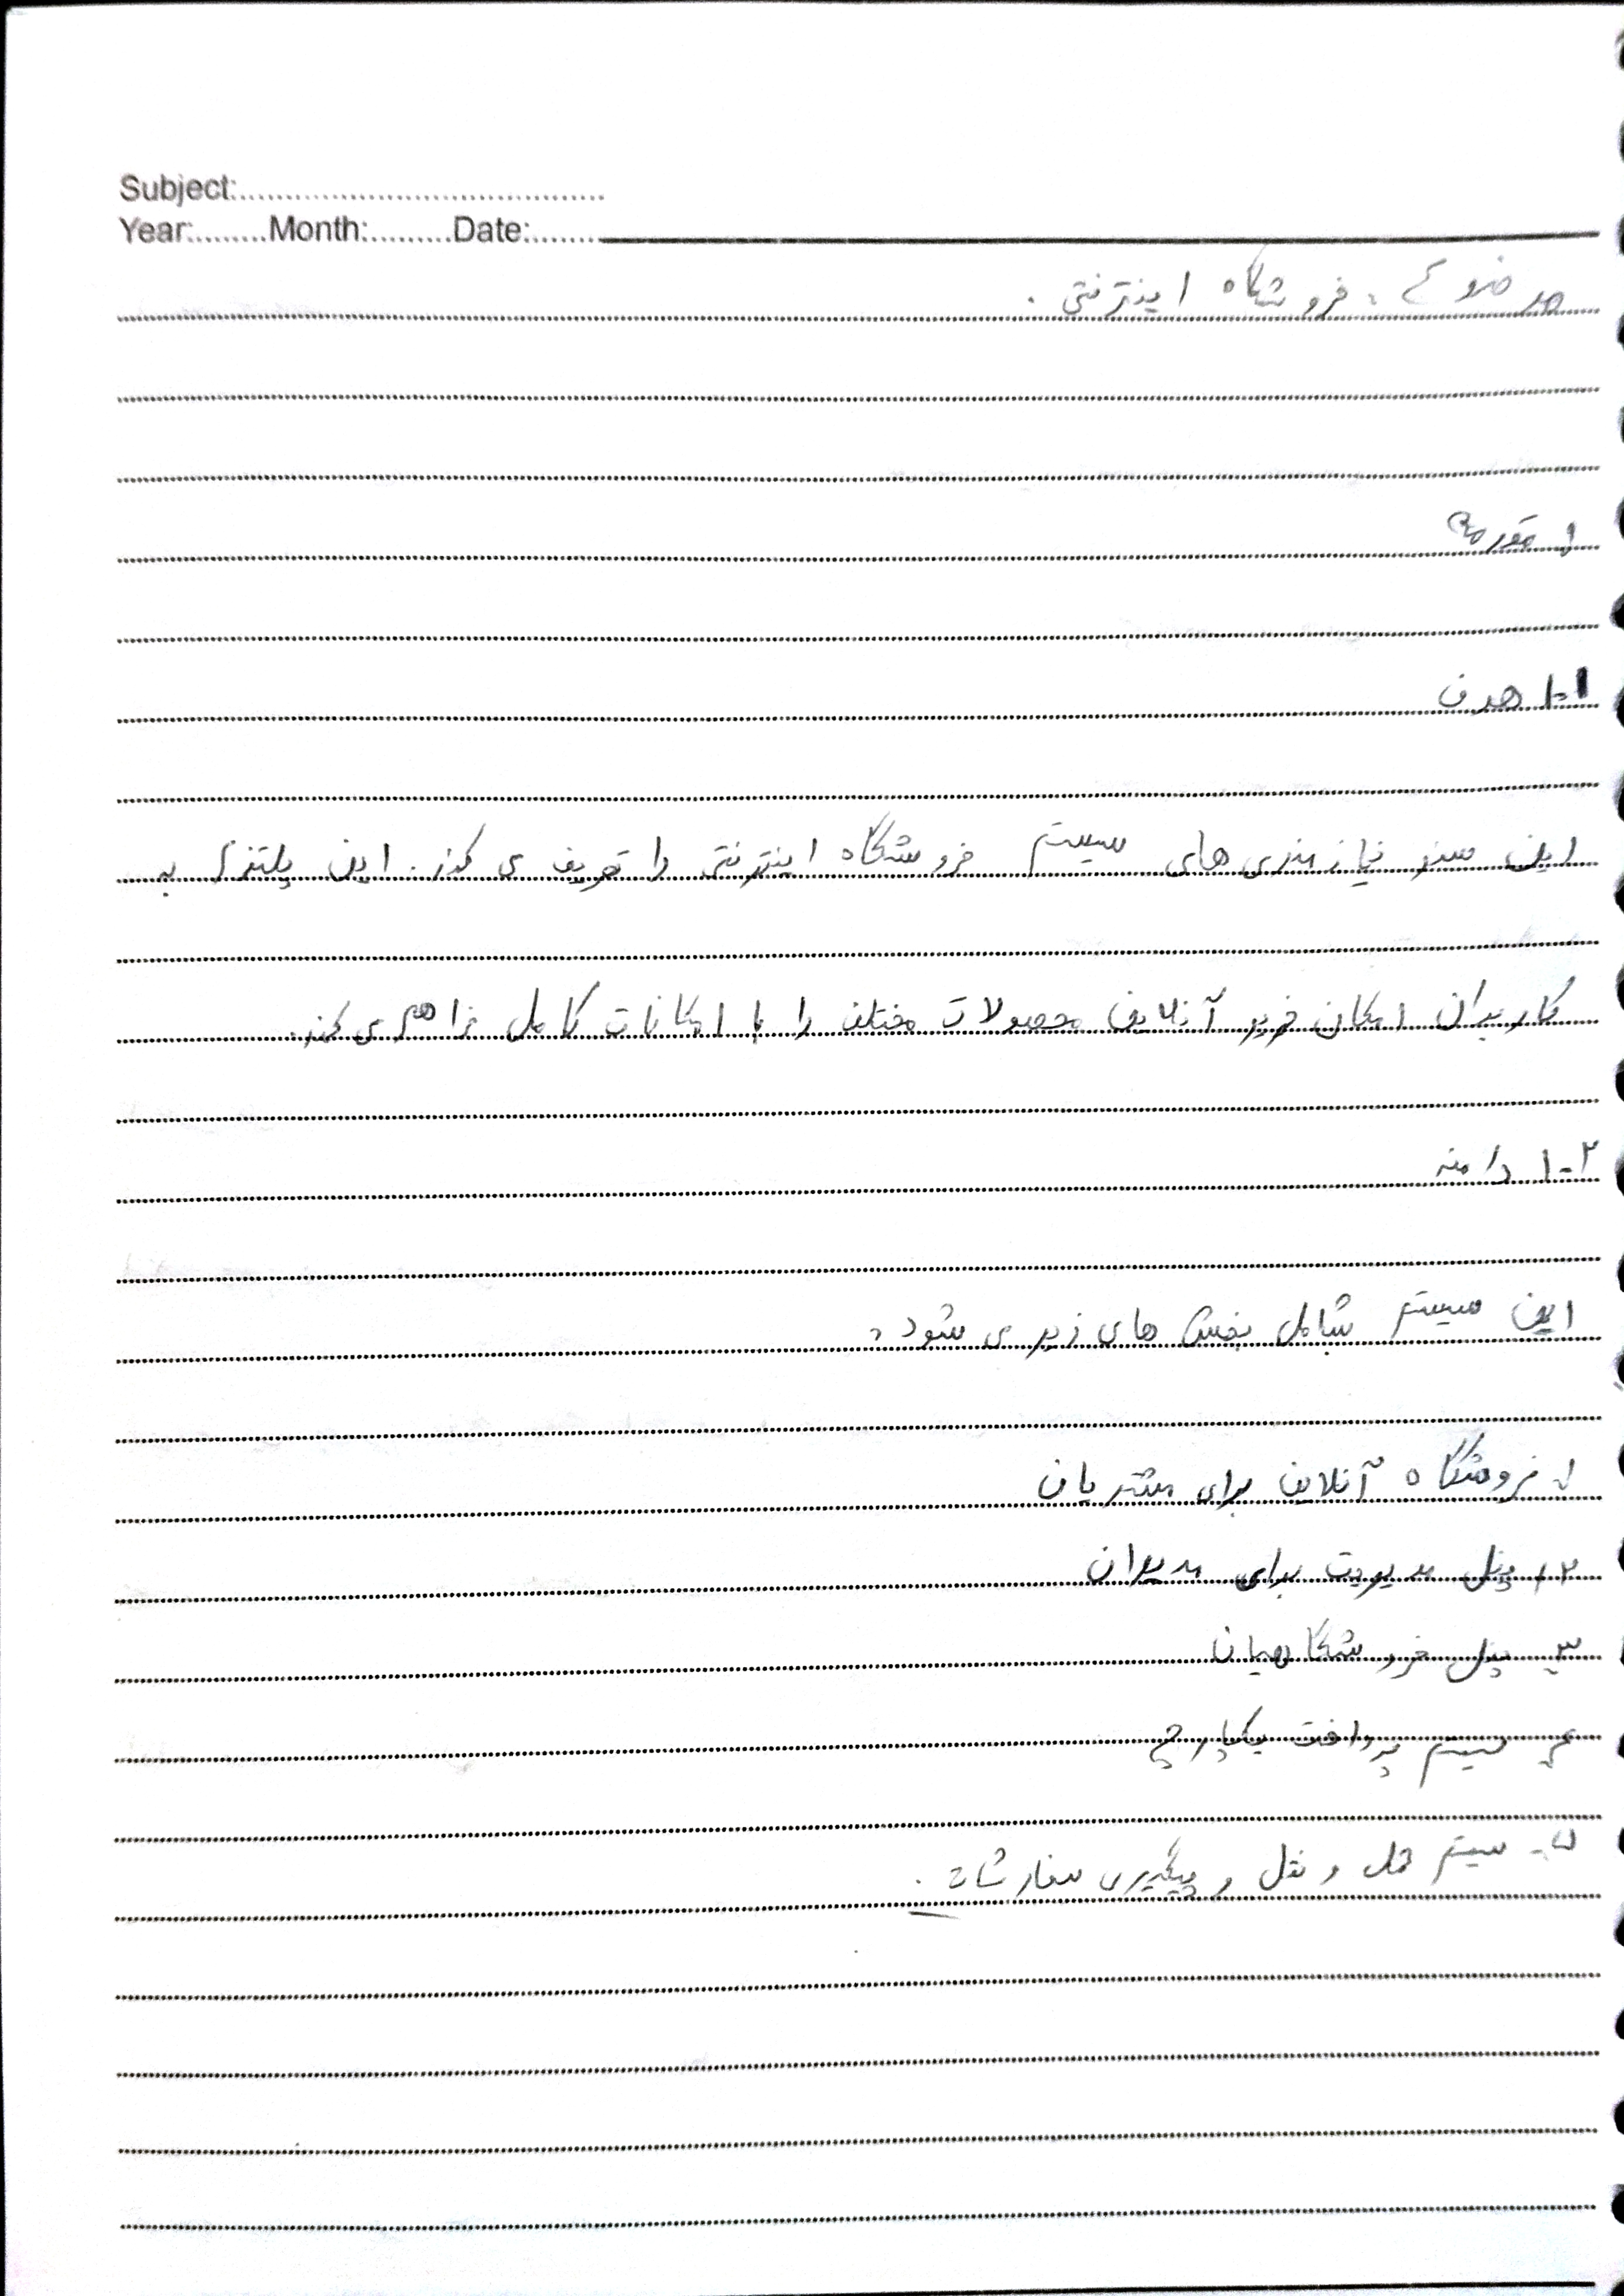 Subject:........................................
Year:.........Month:.........Date:........
موضوع : فروشگاه اینترنتی .
۱. مقدمه
۱-۱ هدف
این سند نیازمندی های سیستم فروشگاه اینترنتی را تعریف می کند. این پلتفرم به
کاربران امکان خرید آنلاین محصولات مختلف را با امکانات کامل فراهم می کند.
۱-۲ دامنه
این سیستم شامل بخش های زیر می شود :
۱. فروشگاه آنلاین برای مشتریان
۲. پنل مدیریت برای مدیران
۳. پنل فروشگاهیان
۴. سیستم پرداخت یکپارچه
۵- سیستم حمل و نقل و پیگیری سفارشات .